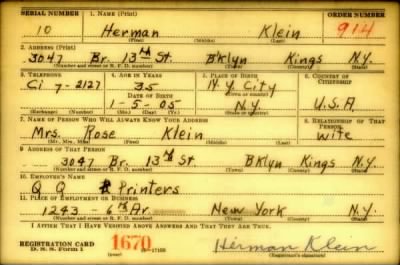 SERIAL NUMBER 1. NAME (Print) ORDER NUMBER
10 Herman Klein 914
(First) (Middle) (Last)
2. ADDRESS (Print)
3047 Br. 13th St. B'klyn Kings N.Y.
(Number and street or R. F. D. number) (Town) (County) (State)
3. TELEPHONE 4. AGE IN YEARS 5. PLACE OF BIRTH 6. COUNTRY OF CITIZENSHIP
Ci 7-2127 35 N.Y. City
DATE OF BIRTH
1-5-05 N.Y. U.S.A.
(Exchange) (Number) (Mo.) (Day) (Yr.) (State or country)
7. NAME OF PERSON WHO WILL ALWAYS KNOW YOUR ADDRESS 8. RELATIONSHIP OF THAT PERSON
Mrs. Rose Klein wife
(Mr., Mrs., Miss) (First) (Middle) (Last)
9. ADDRESS OF THAT PERSON
3047 Br. 13th St B'Klyn Kings N.Y.
(Number and street or R. F. D. number) (Town) (County) (State)
10. EMPLOYER'S NAME
Q Q Printers
11. PLACE OF EMPLOYMENT OR BUSINESS
1243 - 6th Av. New York N.Y.
(Number and street or R. F. D. number) (Town) (County) (State)
I AFFIRM THAT I HAVE VERIFIED ABOVE ANSWERS AND THAT THEY ARE TRUE.
REGISTRATION CARD
D. S. S. Form 1 1670 Herman Klein
(Registrant's signature)